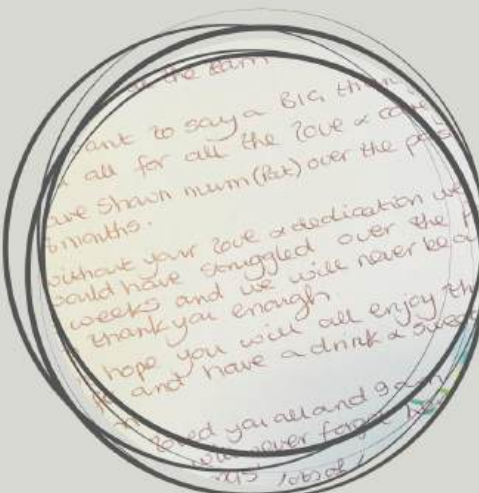 the team
want to say a BIG than
all for all the love & care
have shown mum (Pat) over the pas
months.
without your love & dedication we
would have struggled over the
weeks and we will never be a
thank you enough.
hope you will all enjoy th
and have a drink &
loved you all and
will never forget
lots of